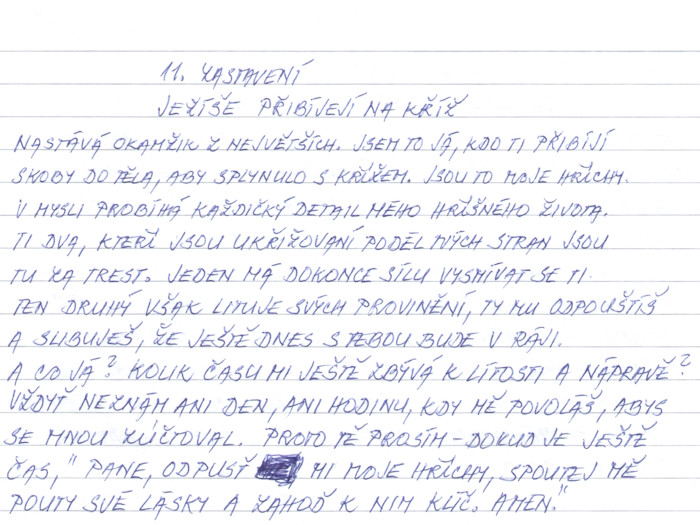 11. ZASTAVENÍ
JEŽÍŠE PŘIBÍJEJÍ NA KŘÍŽ
NASTÁVÁ OKAMŽIK Z NEJVĚTŠÍCH. JSEM TO JÁ, KDO TI PŘIBÍJÍ
SKOBY DO TĚLA, ABY SPLYNULO S KŘÍŽEM. JSOU TO MOJE HŘÍCHY.
V MYSLI PROBÍHÁ KAŽDIČKÝ DETAIL MÉHO HŘÍŠNÉHO ŽIVOTA.
TI DVA, KTEŘÍ JSOU UKŘIŽOVANÍ PODÉL TVÝCH STRAN JSOU
TU ZA TREST. JEDEN MÁ DOKONCE SÍLU VYSMÍVAT SE TI.
TEN DRUHÝ VŠAK LITUJE SVÝCH PROVINĚNÍ, TY MU ODPOUŠTÍŠ
A SLIBUJEŠ, ŽE JEŠTĚ DNES S TEBOU BUDE V RÁJI.
A CO JÁ? KOLIK ČASU MI JEŠTĚ ZBÝVÁ K LÍTOSTI A NÁPRAVĚ?
VŽDYŤ NEZNÁM ANI DEN, ANI HODINU, KDY MĚ POVOLÁŠ, ABYS
SE MNOU ZÚČTOVAL. PROTO TĚ PROSÍM – DOKUD JE JEŠTĚ
ČAS, "PANE, ODPUSŤ MI MOJE HŘÍCHY, SPOUTEJ MĚ
POUTY SVÉ LÁSKY A ZAHOĎ K NIM KLÍČ. AMEN."